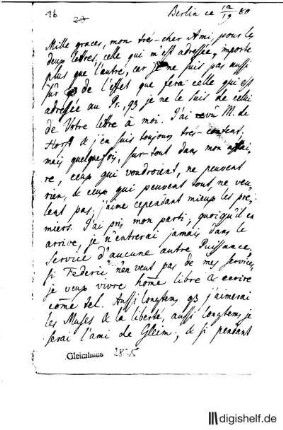 16
Berlin ce 12/19 80
Mille graces, mon tres-cher Ami, pour les
deux lettres, celle qui m'est adressée, importe
plus que l'autre, car je ne suis pas aussi
sur de l'effet que fera celle qui est
adressée au je ne le suis de celui
de Votre lettre à moi. J'ai M. de
Horst & j'en suis toujours tres-content,
mais quelquefois, sur-tout dans mon
ceux qui voudroient, ne peuvent
rien, & ceux qui peuvent tout, ne veu
lent pas, j'aime cependant mieux les pre-
miers. J'ai pris mon parti, quoiqu'il en
arrive, je n'entrerai jamais dans le
Service d'aucune autre Puissance,
si Federic n'en veut pas de mes services,
je veux vivre home libre & ecrire
come tel. Aussi longtems, j'aimerai
les Muses & la liberté, aussi longtems je
serai l'ami de Gleim, & si pendant
Gleimhaus
digishelf.de